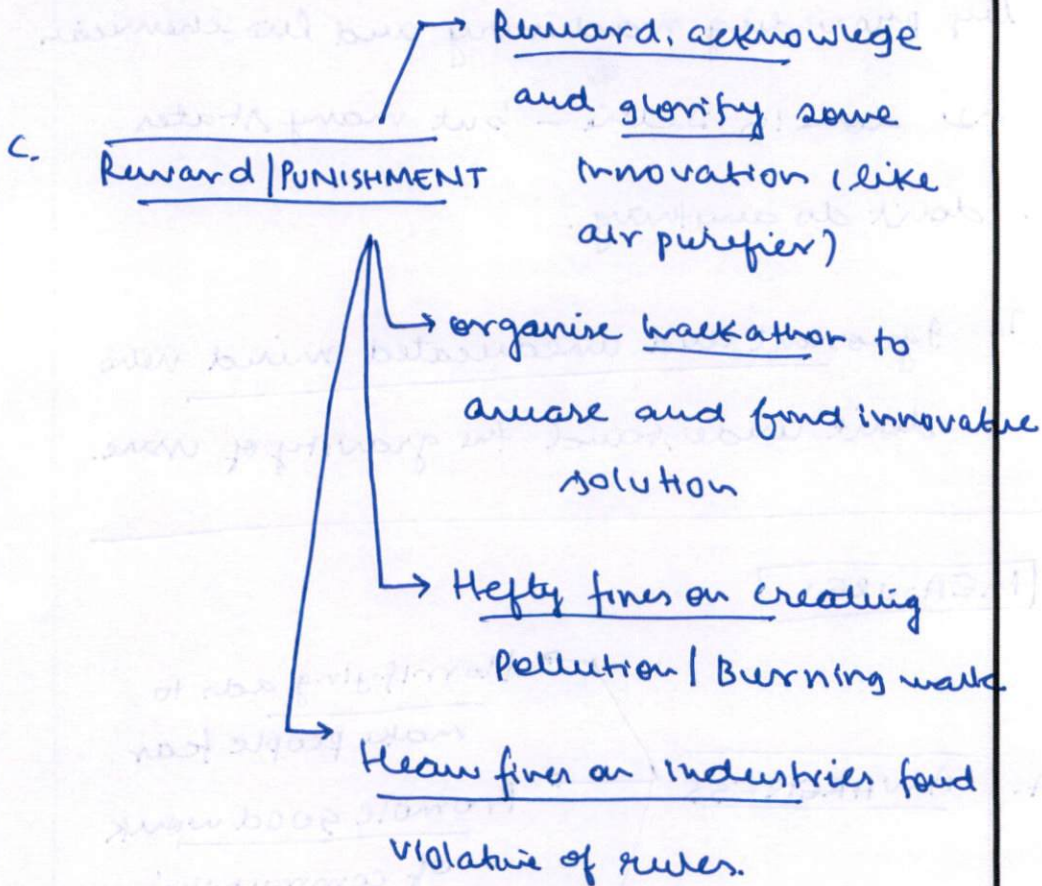 Reward, acknowlege
and glorify some
innovation (like
air purifier)
C. Reward | PUNISHMENT
→ organise hackathon to
aware and find innovative
solution
→ Hefty fines on creating
Pollution | Burning waste
→ Heavy fines on industries found
violative of rules.